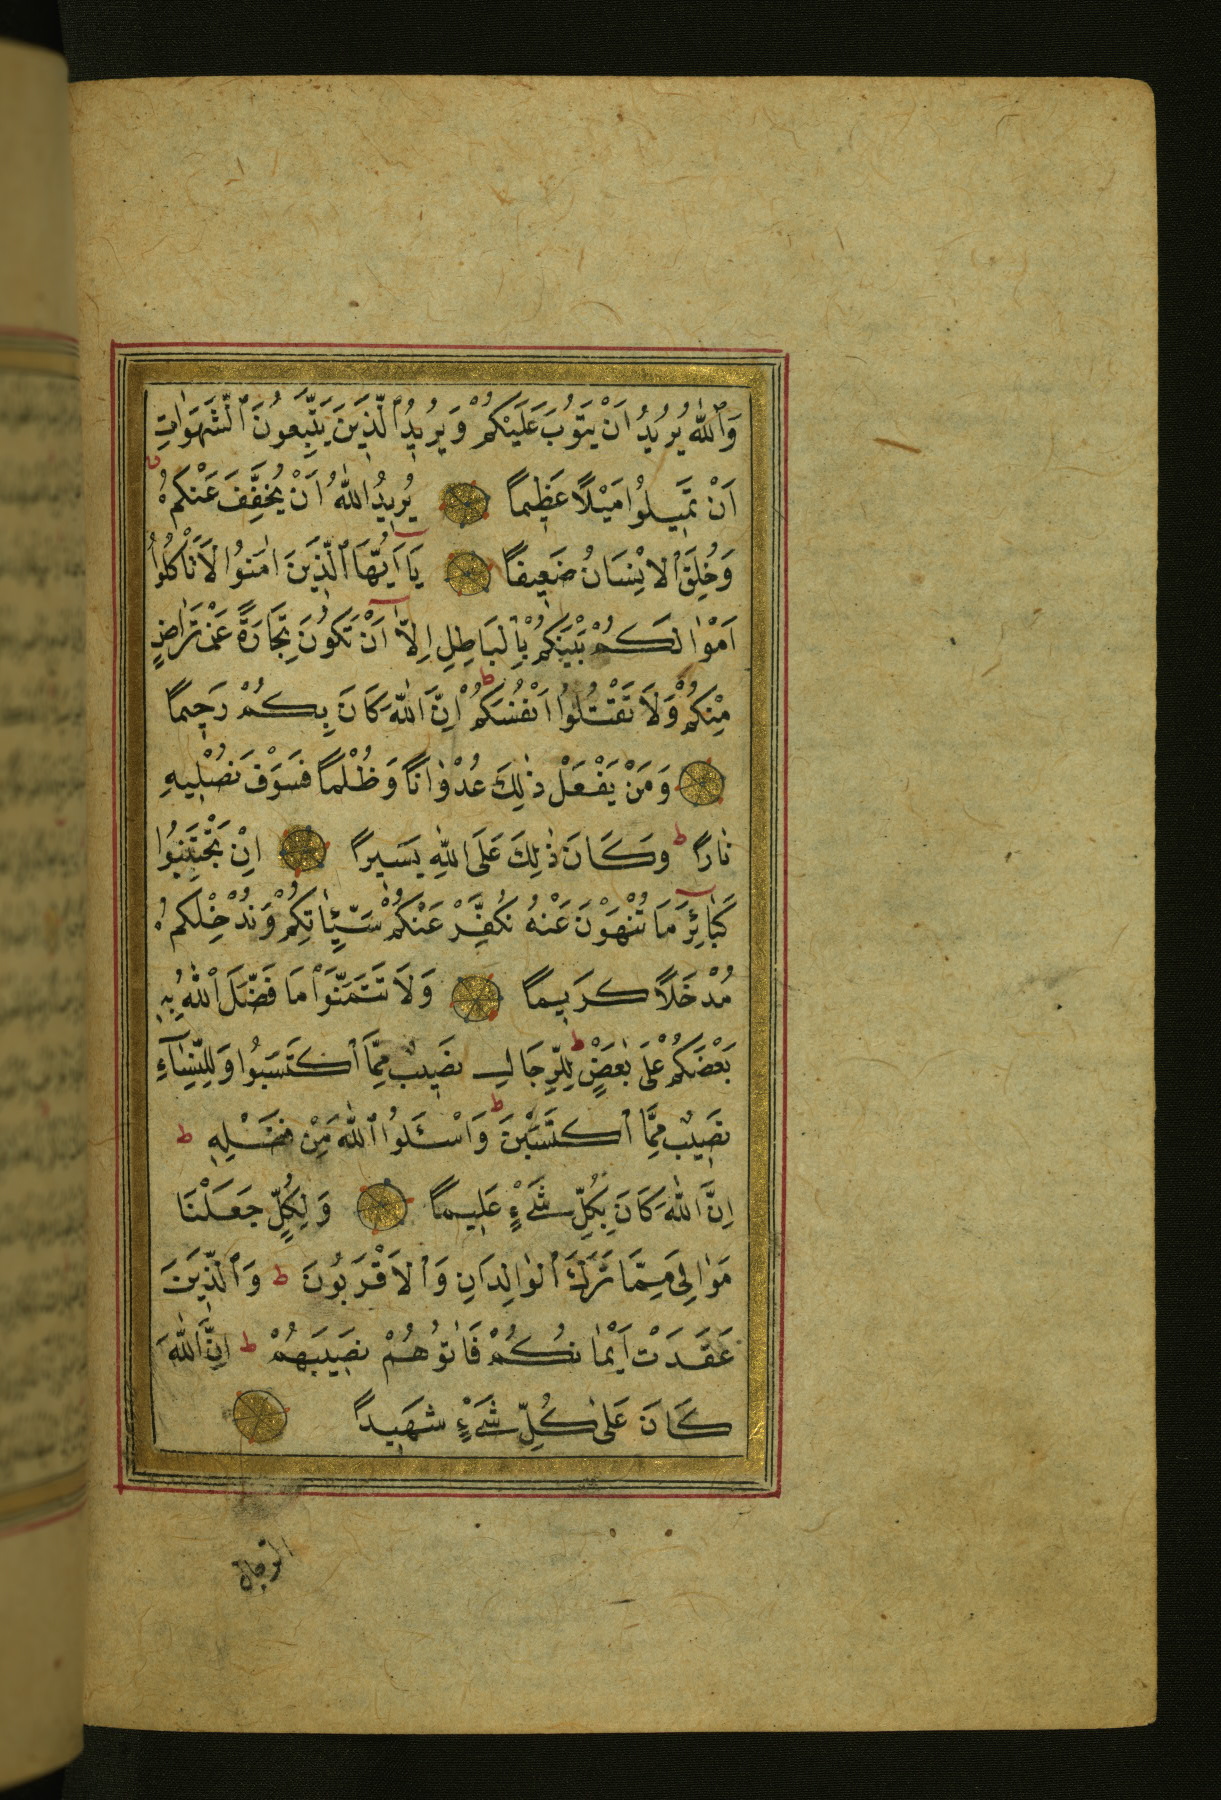 وَٱللّٰهُ يُرِيدُ اَنْ يَتُوبَ عَلَيْكُمْ وَيُرِيدُ ٱلَّذِينَ يَتَّبِعُونَ ٱلشَّهَوَاتِ
اَنْ تَمِيلُوا مَيْلًا عَظِيمًا يُرِيدُ اللّٰهُ اَنْ يُخَفِّفَ عَنْكُمْ
وَخُلِقَ ٱلْاِنْسَانُ ضَعِيفًا يَا اَيُّهَا ٱلَّذِينَ اٰمَنُوا لَا تَاْكُلُوا
اَمْوَالَكُمْ بَيْنَكُمْ بِالْبَاطِلِ اِلَّا اَنْ تَكُونَ تِجَارَةً عَنْ تَرَاضٍ
مِنْكُمْ وَلَا تَقْتُلُوا اَنْفُسَكُمْ ط اِنَّ اللّٰهَ كَانَ بِكُمْ رَحِيمًا
وَمَنْ يَفْعَلْ ذٰلِكَ عُدْوَانًا وَظُلْمًا فَسَوْفَ نُصْلِيهِ
نَارًا ط وَكَانَ ذٰلِكَ عَلَى اللّٰهِ يَسِيرًا اِنْ تَجْتَنِبُوا
كَبَائِرَ مَا تُنْهَوْنَ عَنْهُ نُكَفِّرْ عَنْكُمْ سَيِّئٰاتِكُمْ وَنُدْخِلْكُمْ
مُدْخَلًا كَرِيمًا وَلَا تَتَمَنَّوْا مَا فَضَّلَ ٱللّٰهُ بِهِ
بَعْضَكُمْ عَلٰى بَعْضٍ ط لِلرِّجَالِ نَصِيبٌ مِمَّا ٱكْتَسَبُوا وَلِلنِّسَآءِ
نَصِيبٌ مِمَّا ٱكْتَسَبْنَ ط وَاسْئَلُوا ٱللّٰهَ مِنْ فَضْلِهِ ط
اِنَّ اللّٰهَ كَانَ بِكُلِّ شَىْءٍ عَلِيمًا وَلِكُلٍّ جَعَلْنَا
مَوَالِىَ مِمَّا تَرَكَ ٱلْوَالِدَانِ وَٱلْاَقْرَبُونَ ط وَٱلَّذِينَ
عَقَدَتْ اَيْمَانُكُمْ فَاٰتُوهُمْ نَصِيبَهُمْ ط اِنَّ اللّٰهَ
كَانَ عَلٰى كُلِّ شَىْءٍ شَهِيدًا
الرجال